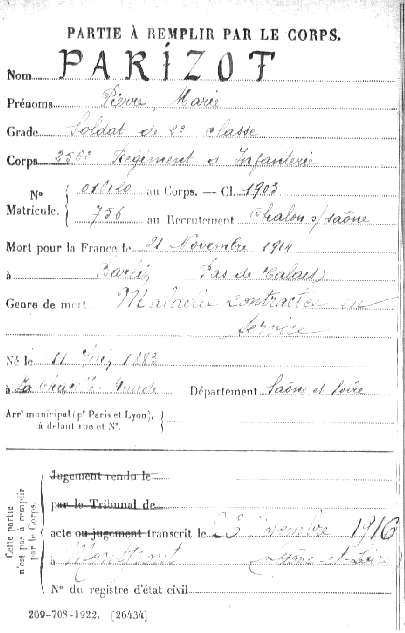 PARTIE À REMPLIR PAR LE CORPS.
Nom PARIZOT
Prénoms Pierre Marie
Grade Soldat de 2e classe
Corps 256e Régiment d'Infanterie
No au Corps. — Cl. 1903
Matricule. 756 au Recrutement Chalon s/saône
Mort pour la France le 21 Novembre 1914
à Pas de Calais
Genre de mort Maladie contractée en
service
Né le 11 1883
à Département Saône et Loire
Arrt municipal (pr Paris et Lyon),
à défaut rue et No.
Cette partie
n'est pas à remplir
par le Corps.
Jugement rendu le
par le Tribunal de
acte ou jugement transcrit le 1916
à Saône et Loire
No du registre d'état civil
209-708-1922. (26434)